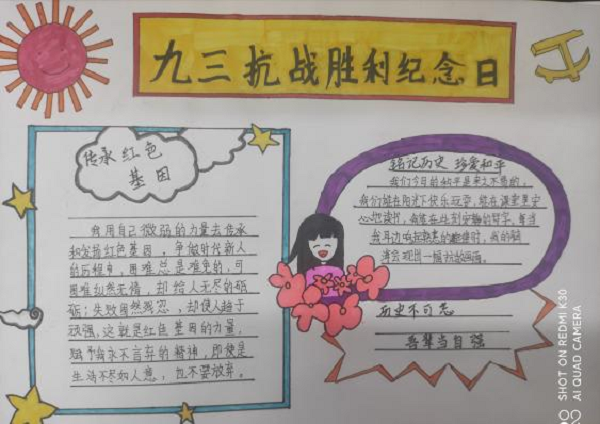 九三抗战胜利纪念日
传承红色
基因
我用自己微弱的力量去传承
和发扬红色基因，争做时代新人
的历程中，困难总是难免的，可
困难纵然无情，却给人无尽的砥
砺；失败固然残忍，却使人趋于
顽强，这就是红色基因的力量，
赋予我永不言弃的精神，即使是
生活不尽如人意，也不要放弃。
铭记历史 珍爱和平
我们今日的和平是来之不易的，
我们能在阳光下快乐玩耍，能在课堂里安
心地读书，我能在
历史不可忘
吾辈当自强
SHOT ON REDMI K30
AI QUAD CAMERA